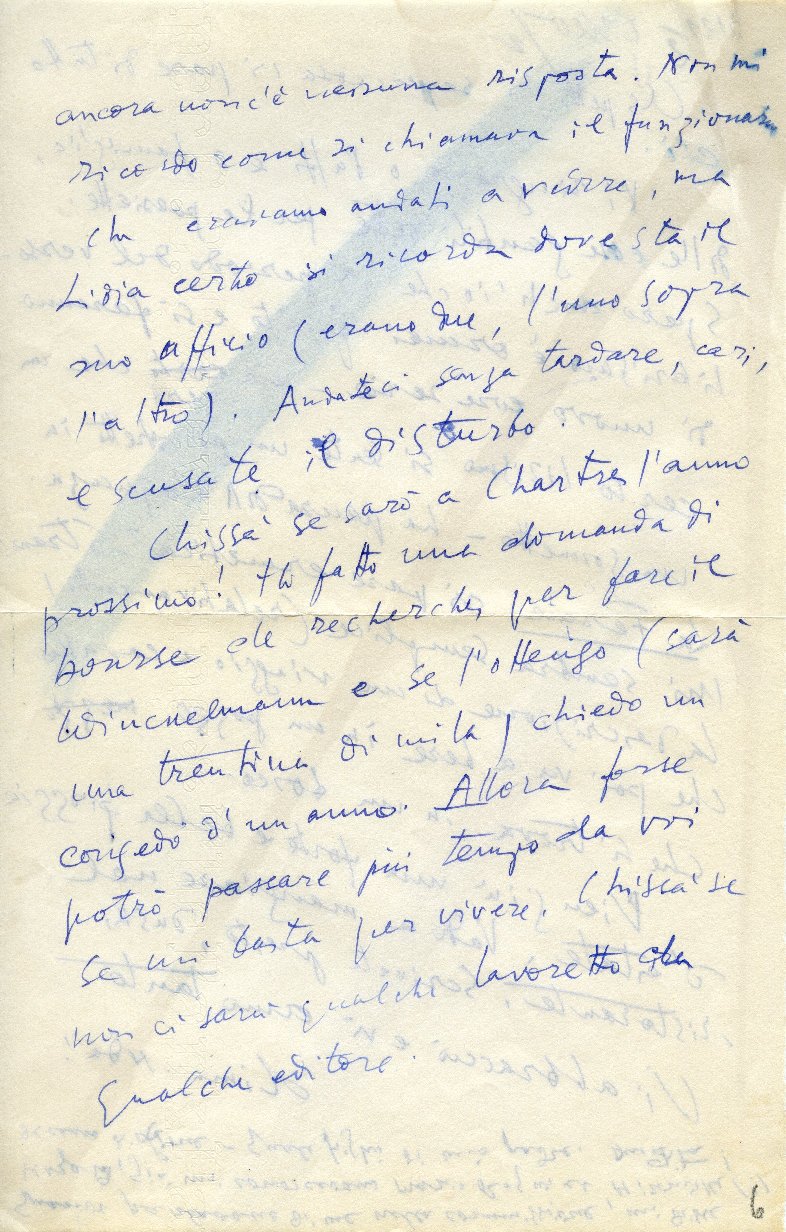 ancora non c'è nessuna risposta. Non mi
ricordo come si chiamava il funzionario
che eravamo andati a vedere, ma
Lidia certo si ricorda dove sta il
suo ufficio (erano due, l'uno sopra
l'altro). Andateci senza tardare, cari,
e scusate il disturbo.
Chissà se sarò a Chartres l'anno
prossimo! Ho fatto una domanda di
bourse de recherches per fare il
Winckelmann e se l'ottengo (sarà
una trentina di mila) chiedo un
congedo d'un anno. Allora forse
potrò passare più tempo da voi
se mi basta per vivere. Chissà se
non ci sarà qualche lavoretto da
qualche editore.
6